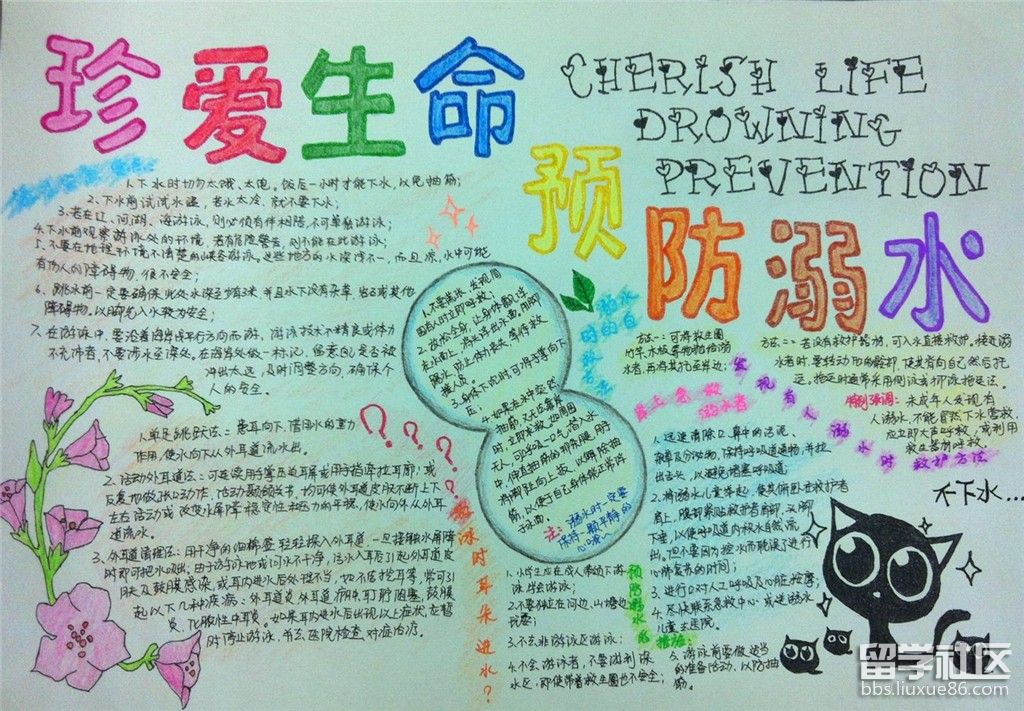 珍爱生命
CHERISH LIFE
DROWNING
PREVENTION
预防溺水
1.下水时切勿太饿、太饱。饭后一小时才能下水,以免抽筋;
2.下水前试试水温,若水太冷,就不要下水;
3.若在江、河、湖、海游泳,则必须有伴相陪,不可单独游泳;
4.下水前观察游泳处的环境,若有危险警告,则不能在此游泳;
5.不要在地理环境不清楚的峡谷游泳。这些地方的水深浅不一,而且凉,水中可能
有伤人的障碍物,很不安全;
6.跳水前一定要确保此处水深至少有3米,并且水下没有杂草、岩石或其他
障碍物。以脚先入水较为安全;
7.在游泳中,要沿着海岸线平行方向而游,游泳技术不精良或体力
不充沛者,不要涉水至深处。在海岸处做一标记,留意自己是否被
冲出太远,及时调整方向,确保个
人的安全。
1.不要慌张,发现周
围有人时立即呼救;
2.放松全身,让身体飘浮
在水面上,将头部浮出水面,用脚
踢水,防止体力丧失,等待救
援人员;
3.身体下沉时,可将手掌向下
压;
4.如果在水中突然
抽筋,又无法靠岸
时,立即求救。如周围
无人,可深吸一口气潜入水
中,伸直抽筋的那条腿,用手
将脚趾向上扳,以解除抽
筋,以便于自己身体能正常浮
于水面。
注:溺水时一定要
保持一颗平静的
心哦~
溺水
时的自
救方法
方法一:可将救生圈
竹竿、木板等物抛给溺
水者,再将其拖至岸边;
方法二:若没有救护器材,可入水直接救护。接近溺
水者时要转动他的髋部,使其背向自己然后拖
运。拖运时通常采用侧泳或仰泳拖运法。
特别强调:未成年人发现有
人溺水,不能冒然下水营救,
应立即大声呼救,或利用
救生器材呼救。
发现有人溺水时救护方法
岸上急救
溺水者
1.迅速清除口、鼻中的污泥、
杂草及分泌物,保持呼吸道通畅,并拉
出舌头,以避免堵塞呼吸道;
2.将溺水儿童举起,使其俯卧在救护者
肩上,腹部紧贴救护者肩部,头脚
下垂,以使呼吸道内积水自然流
出。但不要因为控水而耽误了进行
心肺复苏的时间;
3.进行口对人工呼吸及心脏按摩;
4.尽快联系急救中心或送溺水
儿童去医院。
不下水...
1.单足跳跃法:患耳向下,借用水的重力
作用,使水向下从外耳道流出。
2.活动外耳道法:可连续用手掌压迫耳屏或用手指牵拉耳廓;或
反复地做张口动作,活动颞颌关节,均可使外耳道皮肤不断上下
左右活动或改变水屏障稳定性和压力的平衡,使水向外从外耳
道流水。
3.外耳道清理法:用干净的细棉签轻轻探入外耳道,一旦接触水屏障
时即可把水吸出。由于游泳池或河水不干净,污水入耳后引起外耳道皮
肤及鼓膜感染,或耳内进水后处理不当,如不洁挖耳等,常可引
起以下几种疾病、外耳道炎外耳道疖耵聍阻塞、鼓膜
炎、化脓性中耳炎。如果耳内进水后出现以上症状,应暂
时停止游泳,并去医院检查,对症治疗。
游泳时耳朵进水?
1.小学生应在成人带领下游
泳,学会游泳;
2.不要独自在河边、山塘边
玩耍;
3.不去非游泳区游泳;
4.不会游泳者,不要游到深
水区,即使带着救生圈也不安全;
5.游泳前要做适当
的准备活动,以防抽
筋。
预防溺水的
措施:
留学社区
bbs.liuxue86.com